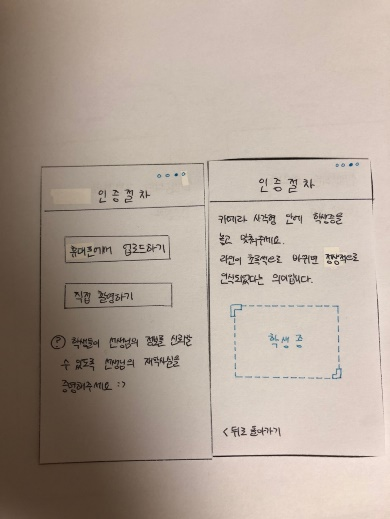 인증절차
휴대폰에서 업로드하기
직접 촬영하기
? 학생들이 선생님의 정보를 신뢰할
수 있도록 선생님의 재학사실을
증명해주세요 :>
인증절차
카메라 사각형 안에 학생증을
놓고 맞춰주세요.
라인이 초록색으로 바뀌면 정상적으로
인식되었다는 의미입니다.
학생증
< 뒤로 돌아가기